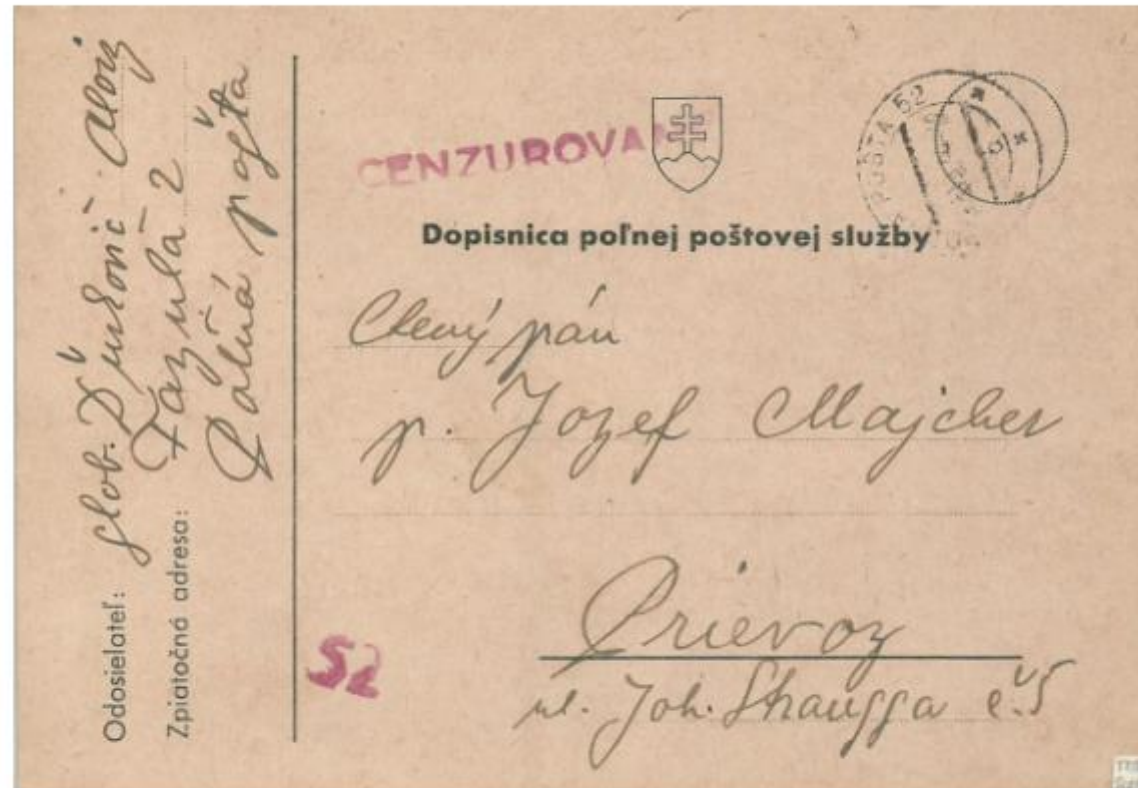 Odosielateľ: slob. Ďurkovič Alojz
Zpiatočná adresa: Fazula 2
Poľná pošta
CENZUROVAN
POŠTA 52
Dopisnica poľnej poštovej služby
Ctený pán
p. Jozef Majcher
Prievoz
ul. Joh. Straussa č. 5
52